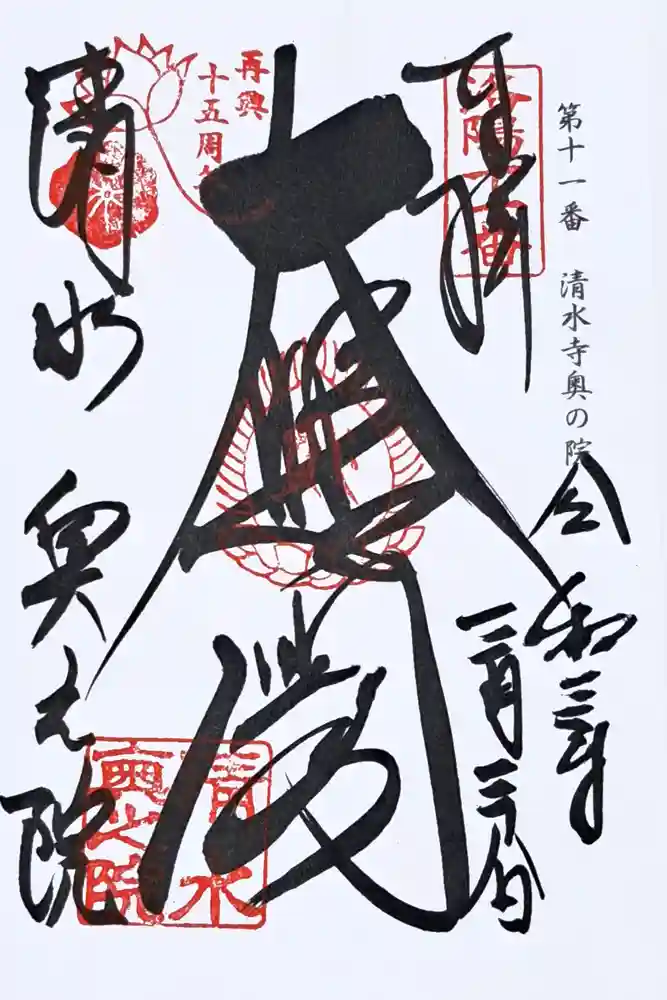 第十一番 清水寺奥の院
令和三年
三月三十日
奉拝
洛陽十一番
大悲殿
再興
十五周年
清水
奥之院
清水
奥之院